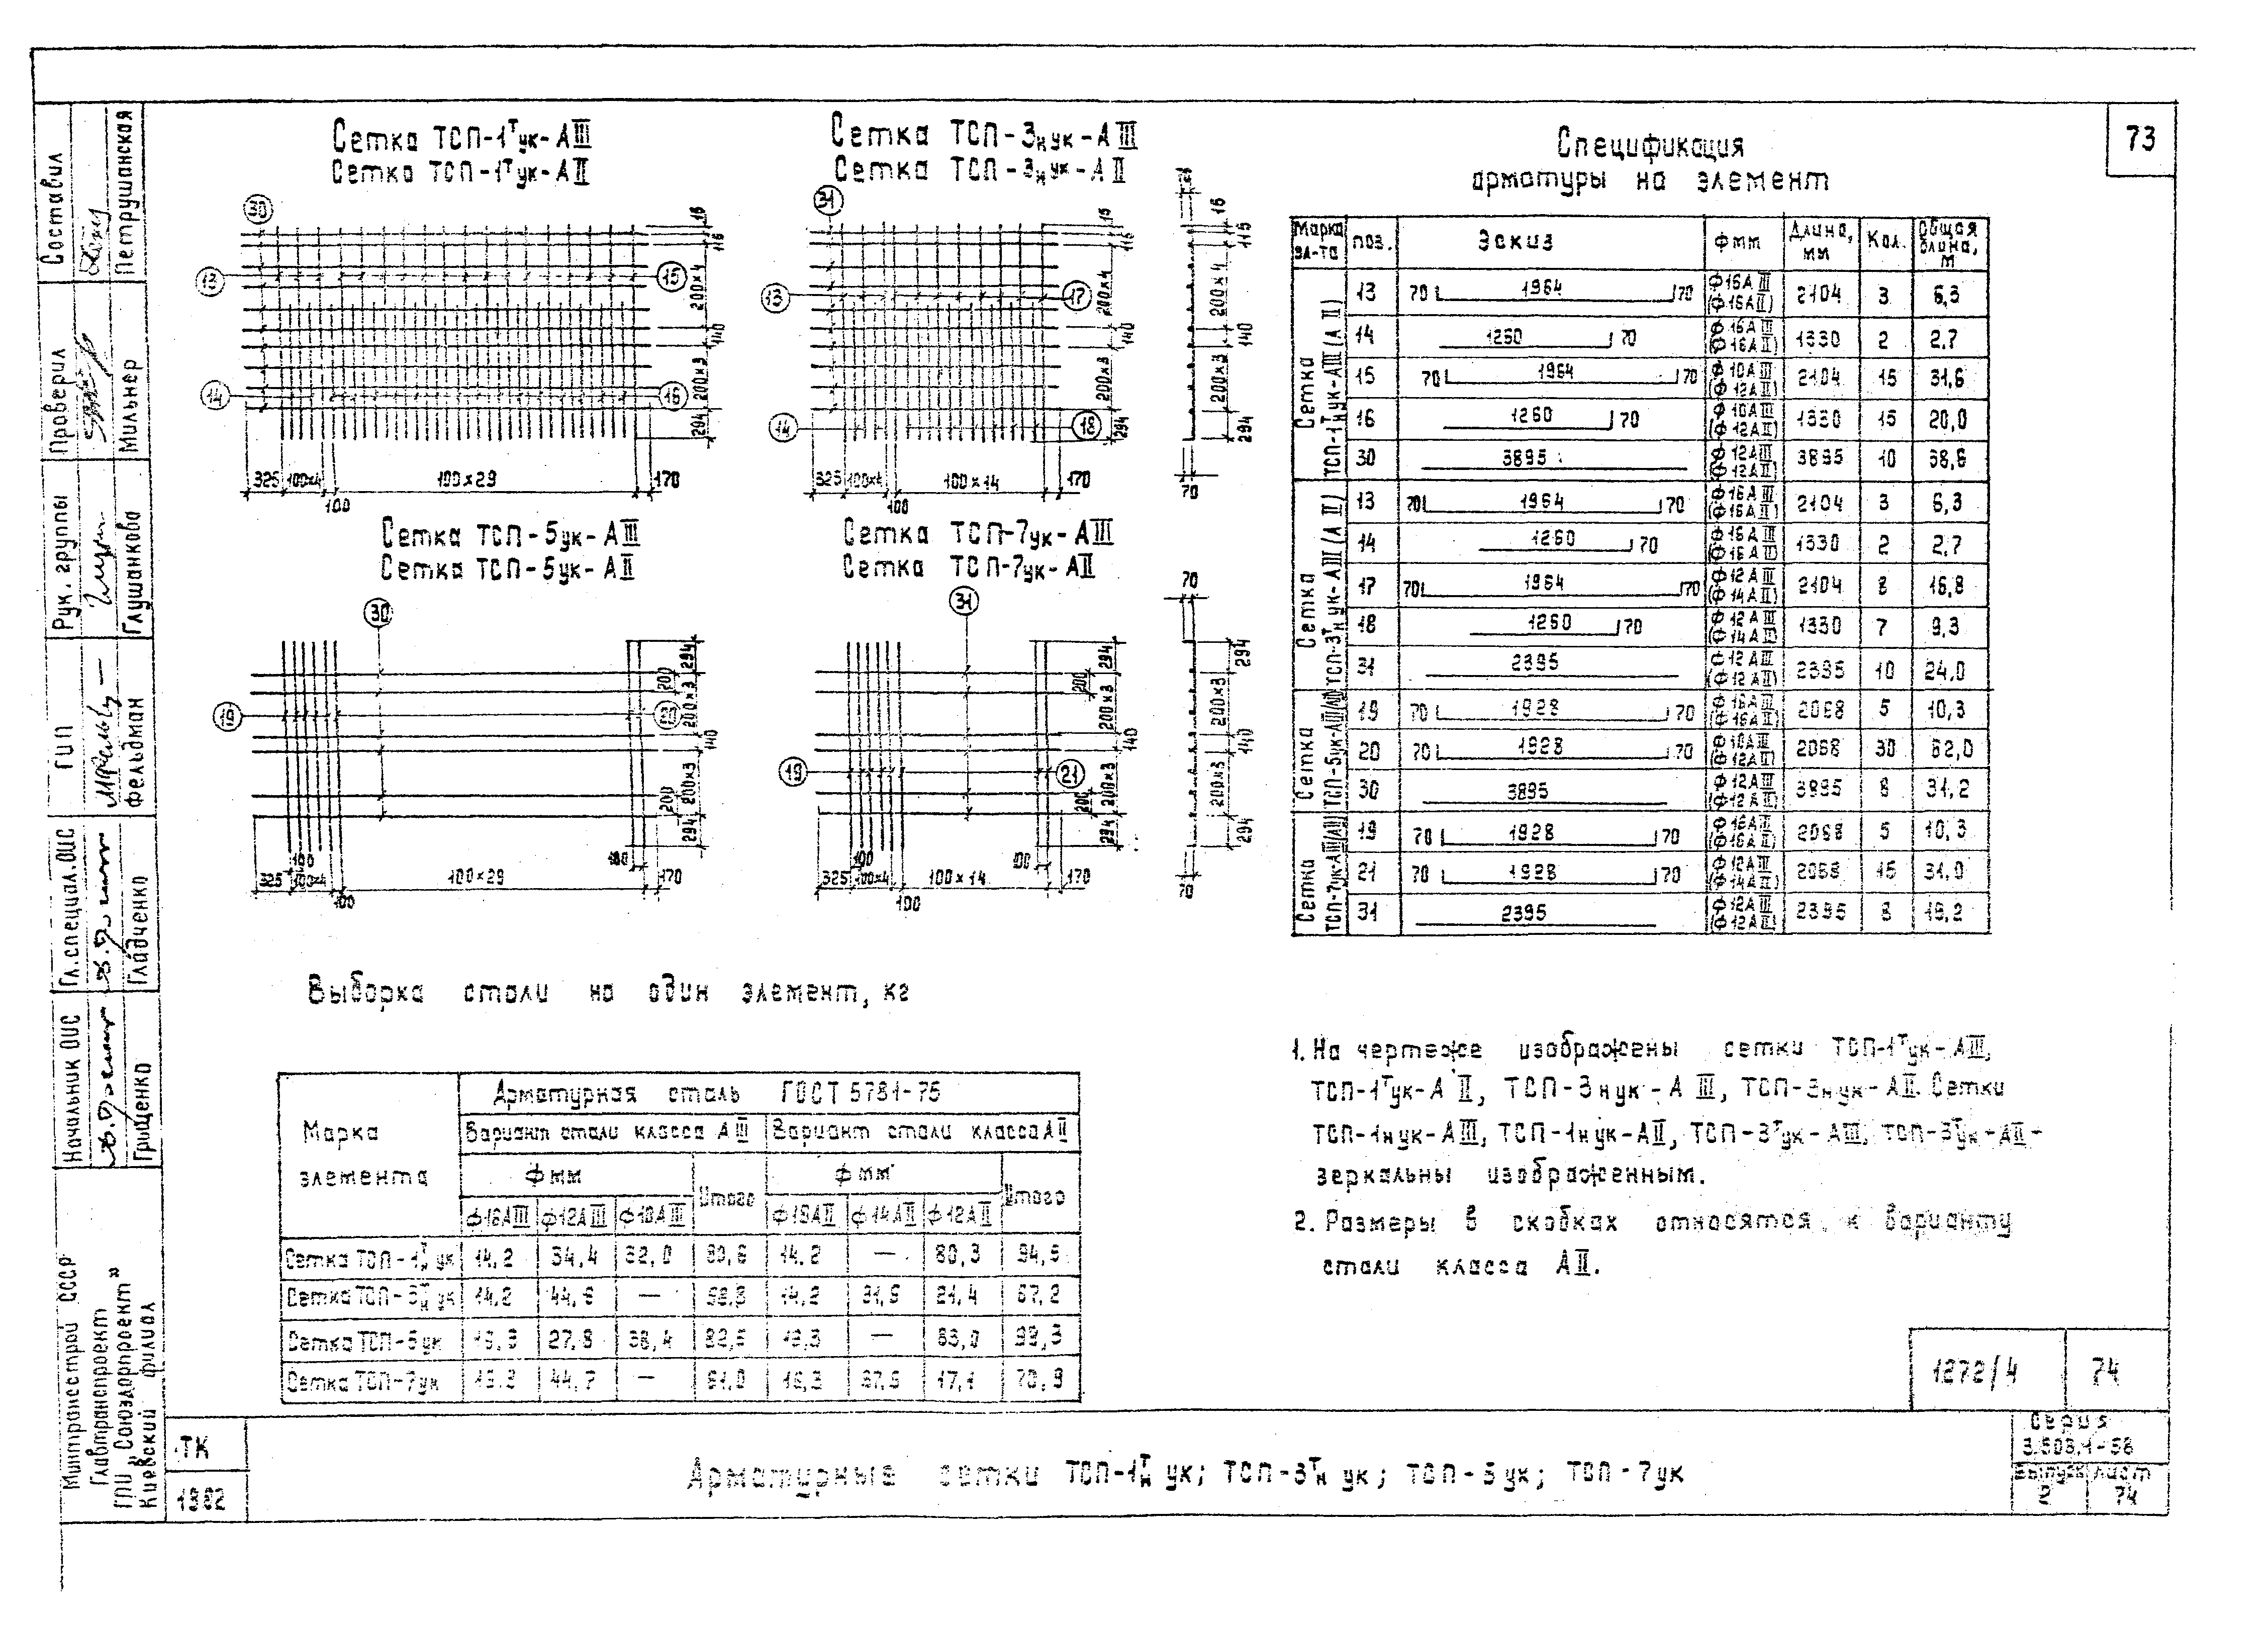 73
Составил
Петрушанская
Проверил
Мильнер
Рук. группы
Глушанкова
ГИП
Фельдман
Гл. специал. ОИС
Гладченко
Начальник ОИС
Грищенко
Минтрансстрой СССР
Главтранспроект
ГПИ „Союздорпроект”
Киевский филиал
Сетка ТСП-1ᵀук-АIII
Сетка ТСП-1ᵀук-АII
30
13
15
14
16
15
115
200×4
140
200×3
294
325
100×4
100
100×29
170
Сетка ТСП-3нук-АIII
Сетка ТСП-3нук-АII
31
13
17
14
18
15
115
200×4
140
200×3
294
325
100×4
100
100×14
170
15
115
200×4
140
200×3
294
70
Сетка ТСП-5ук-АIII
Сетка ТСП-5ук-АII
30
19
294
200
200×3
140
200×3
200
294
100
325
100×4
100
100×29
100
170
Сетка ТСП-7ук-АIII
Сетка ТСП-7ук-АII
31
19
21
294
200
200×3
140
200×3
200
294
100
325
100×4
100
100×14
100
170
70
294
200×3
140
200×3
294
70
Спецификация
арматуры на элемент
Марка эл-та поз. Эскиз Фмм Длина, мм Кол. Общая длина, м
Сетка ТСП-1ᵀнук-АIII (АII)
13 70 1964 70 Ф16АIII (Ф16АII) 2104 3 6,3
14 1260 70 Ф16АIII (Ф16АII) 1330 2 2,7
15 70 1964 70 Ф10АIII (Ф12АII) 2104 15 31,6
16 1260 70 Ф10АIII (Ф12АII) 1330 15 20,0
30 3895 Ф12АIII (Ф12АII) 3895 10 38,6
Сетка ТСП-3ᵀнук-АIII (АII)
13 70 1964 70 Ф16АIII (Ф16АII) 2104 3 6,3
14 1260 70 Ф16АIII (Ф16АII) 1330 2 2,7
17 70 1964 70 Ф12АIII (Ф14АII) 2104 8 16,8
18 1260 70 Ф12АIII (Ф14АII) 1330 7 9,3
31 2395 Ф12АIII (Ф12АII) 2395 10 24,0
Сетка ТСП-5ук-АIII(АII)
19 70 1928 70 Ф16АIII (Ф16АII) 2068 5 10,3
20 70 1928 70 Ф10АIII (Ф12АII) 2068 30 62,0
30 3895 Ф12АIII (Ф12АII) 3895 8 31,2
Сетка ТСП-7ук-АIII(АII)
19 70 1928 70 (Ф16АII) 2068 5 10,3
21 70 1928 70 Ф12АIII (Ф14АII) 2068 15 31,0
31 2395 Ф12АIII (Ф12АII) 2395 8 19,2
Выборка стали на один элемент, кг
Марка элемента
Арматурная сталь ГОСТ 5781-75
Вариант стали класса АIII Вариант стали класса АII
Фмм Итого Фмм Итого
Ф16АIII Ф12АIII Ф10АIII Ф16АII Ф14АII Ф12АII
Сетка ТСП-1ᵀнук 14,2 34,4 32,0 80,6 14,2 — 80,3 94,5
Сетка ТСП-3ᵀнук 14,2 44,6 — 58,8 14,2 31,6 21,4 67,2
Сетка ТСП-5ук 16,3 27,8 38,4 82,5 16,3 — 83,0 99,3
Сетка ТСП-7ук 16,3 44,7 — 61,0 16,3 37,5 17,1 70,9
1. На чертеже изображены сетки ТСП-1ᵀук-АIII,
ТСП-1ᵀук-АII, ТСП-3нук-АIII, ТСП-3нук-АII. Сетки
ТСП-1нук-АIII, ТСП-1нук-АII, ТСП-3ᵀук-АIII, ТСП-3ᵀук-АII-
зеркальны изображенным.
2. Размеры в скобках относятся к варианту
стали класса АII.
1272/4 74
ТК
1982
Арматурные сетки ТСП-1ᵀн ук; ТСП-3ᵀн ук; ТСП-5ук; ТСП-7ук
Серия
3.503.1-58
выпуск лист
2 74